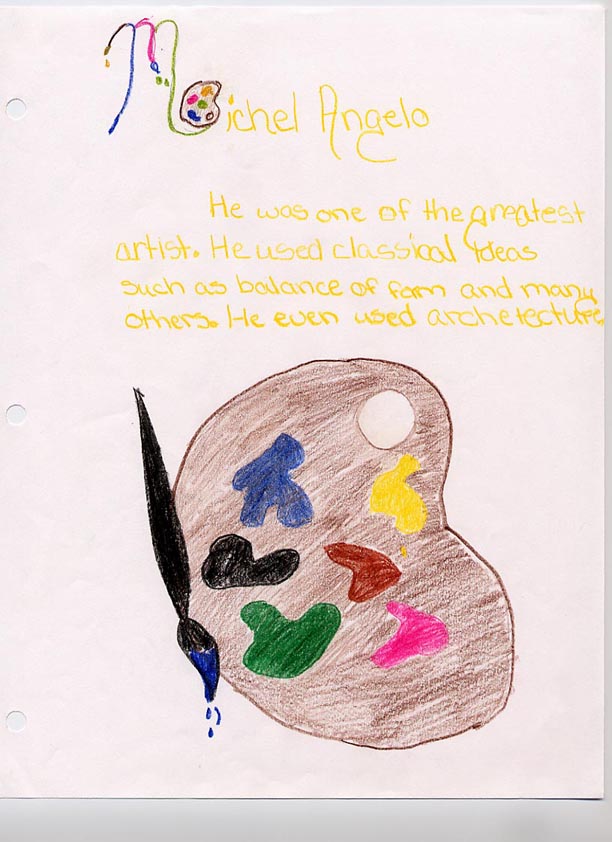 Michel Angelo
He was one of the greatest
artist. He used classical Ideas
such as balance of form and many
others. He even used archetecture